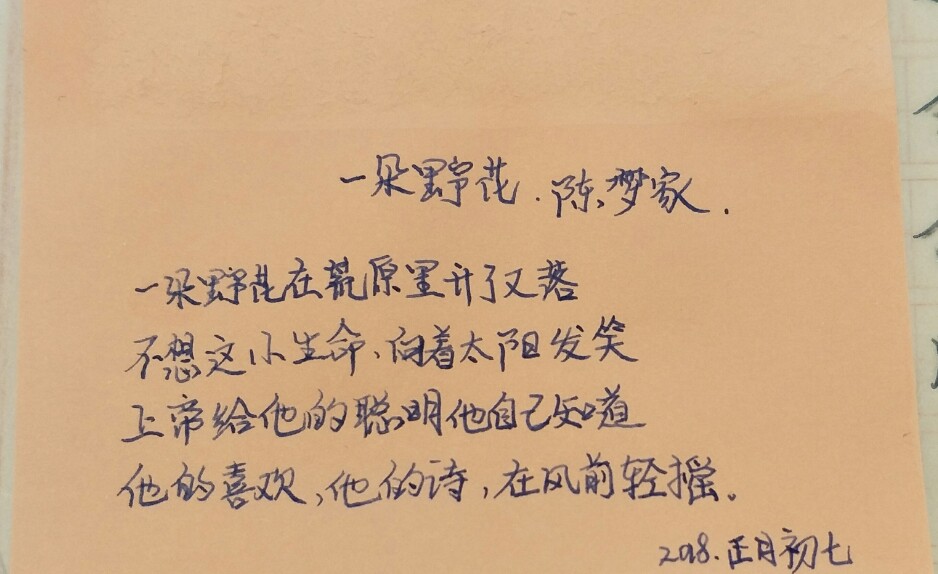 一朵野花.陈梦家.
一朵野花在荒原里开了又落
不想这小生命、向着太阳发笑
上帝给他的聪明他自己知道
他的喜欢,他的诗,在风前轻摇。
2018.正月初七